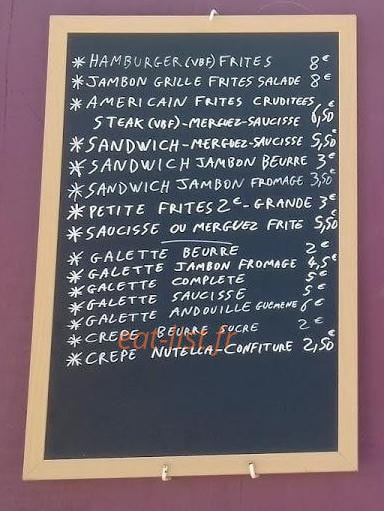 * HAMBURGER (VBF) FRITES 8€
* JAMBON GRILLE FRITES SALADE 8€
* AMERICAIN FRITES CRUDITEES
STEAK (VBF)-MERGUEZ-SAUCISSE 6,50€
* SANDWICH-MERGUEZ-SAUCISSE 5,50€
* SANDWICH JAMBON BEURRE 3€
* SANDWICH JAMBON FROMAGE 3,50€
* PETITE FRITES 2€-GRANDE 3€
* SAUCISSE OU MERGUEZ FRITE 5,50€
* GALETTE BEURRE 2€
* GALETTE JAMBON FROMAGE 4,5€
* GALETTE COMPLETE 5€
* GALETTE SAUCISSE 5€
* GALETTE ANDOUILLE GUEMENE 6€
* CREPE BEURRE SUCRE 2€
eat-list.fr
* CREPE NUTELLA-CONFITURE 2,50€